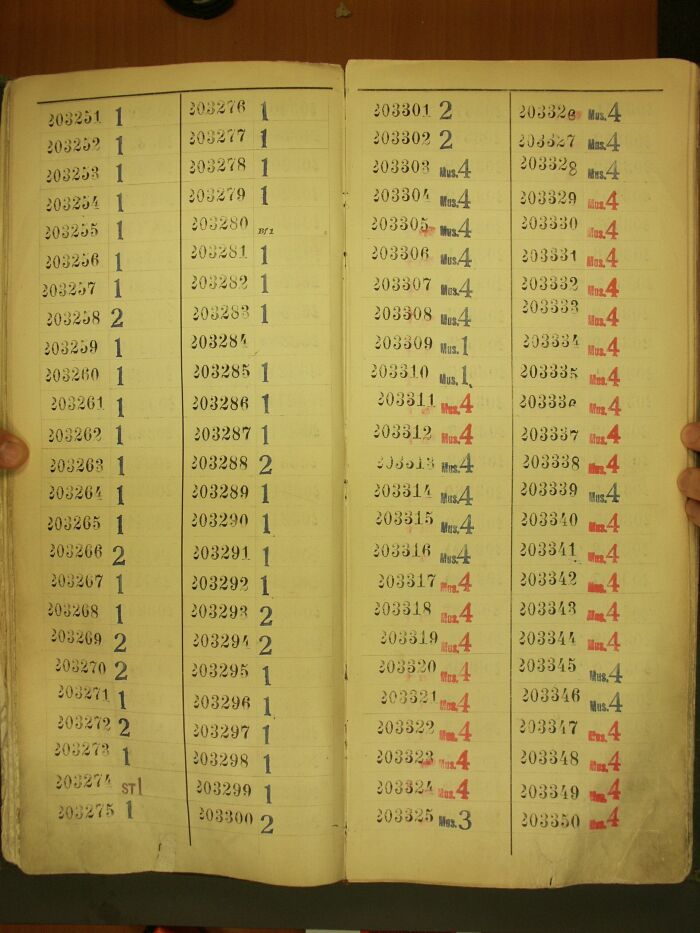 203251 1
203252 1
203253 1
203254 1
203255 1
203256 1
203257 1
203258 2
203259 1
203260 1
203261 1
203262 1
203263 1
203264 1
203265 1
203266 2
203267 1
203268 1
203269 2
203270 2
203271 1
203272 2
203273 1
203274 ST1
203275 1
203276 1
203277 1
203278 1
203279 1
203280 Bf1
203281 1
203282 1
203283 1
203284
203285 1
203286 1
203287 1
203288 2
203289 1
203290 1
203291 1
203292 1
203293 2
203294 2
203295 1
203296 1
203297 1
203298 1
203299 1
203300 2
203301 2
203302 2
203303 Mus. 4
203304 Mus. 4
203305 Mus. 4
203306 Mus. 4
203307 Mus. 4
203308 Mus. 4
203309 Mus. 1
203310 Mus. 1
203311 Mus. 4
203312 Mus. 4
203313 Mus. 4
203314 Mus. 4
203315 Mus. 4
203316 Mus. 4
203317 Mus. 4
203318 Mus. 4
203319 Mus. 4
203320 Mus. 4
203321 Mus. 4
203322 Mus. 4
203323 Mus. 4
203324 Mus. 4
203325 Mus. 3
203326 Mus. 4
203327 Mus. 4
203328 Mus. 4
203329 Mus. 4
203330 Mus. 4
203331 Mus. 4
203332 Mus. 4
203333 Mus. 4
203334 Mus. 4
203335 Mus. 4
203336 Mus. 4
203337 Mus. 4
203338 Mus. 4
203339 Mus. 4
203340 Mus. 4
203341 Mus. 4
203342 Mus. 4
203343 Mus. 4
203344 Mus. 4
203345 Mus. 4
203346 Mus. 4
203347 Mus. 4
203348 Mus. 4
203349 Mus. 4
203350 Mus. 4